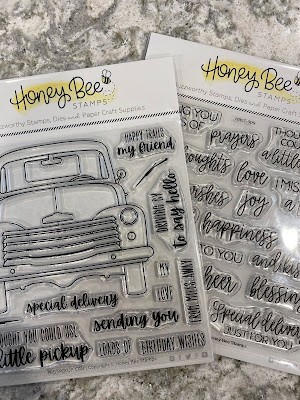 Honey Bee
STAMPS
Buzzworthy Stamps, Dies and Paper Craft Supplies
HAPPY TRAILS
my friend
DRIVING BY
to say hello
MY
LOVE
FROM MILES AWAY
special delivery
sending you
THOUGHT YOU COULD USE
a little pickup
LOADS OF
BIRTHDAY WISHES
Honey Bee
STAMPS
Stamps, Dies and Paper Craft Supplies
prayers
a little
thoughts
love
I MISS
wishes
joy
happiness
TO YOU
and
cheer
blessing
Special delivery
JUST FOR YOU